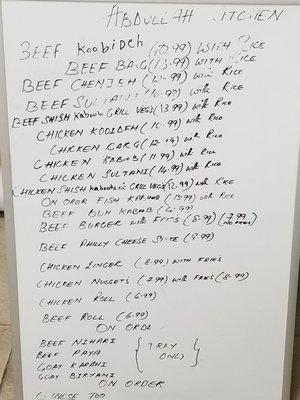 ABDULLAH KITCHEN
BEEF KOOBIDEH (10.99) WITH RICE
BEEF BARG (13.99) WITH RICE
BEEF CHENJEH (12.99) with RICE
BEEF SULTANI with RICE
BEEF SHISH KABOOB GRILL VEGS (13.99) with RICE
CHICKEN KOOBIDEH (10.99) with RICE
CHICKEN BARG with RICE
CHICKEN KABOOB (11.99) with RICE
CHICKEN SULTANI (14.99) with RICE
CHICKEN SHISH GRILL VEGS with RICE
ON ORDER FISH KABOOB with RICE
BEEF BUN KABOOB (6.99)
BEEF BURGER with FRIES (8.99) (7.99 NO FRIES)
BEEF PHILLY CHEESE (9.99)
CHICKEN ZINGER (8.99) with FRIES
CHICKEN NUGGETS (7.99) with FRIES (8.99)
CHICKEN ROLL (6.99)
BEEF ROLL (6.99)
ON ORDE
BEEF NIHARI
BEEF PAYA
GOAT KARAHI
GOAT BIRYANI
{ TRAY ONLY }
ON ORDER
CHINESE TOO